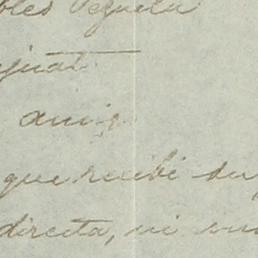 bles Pezuela
igual
amig
que recibi su
directa, ni